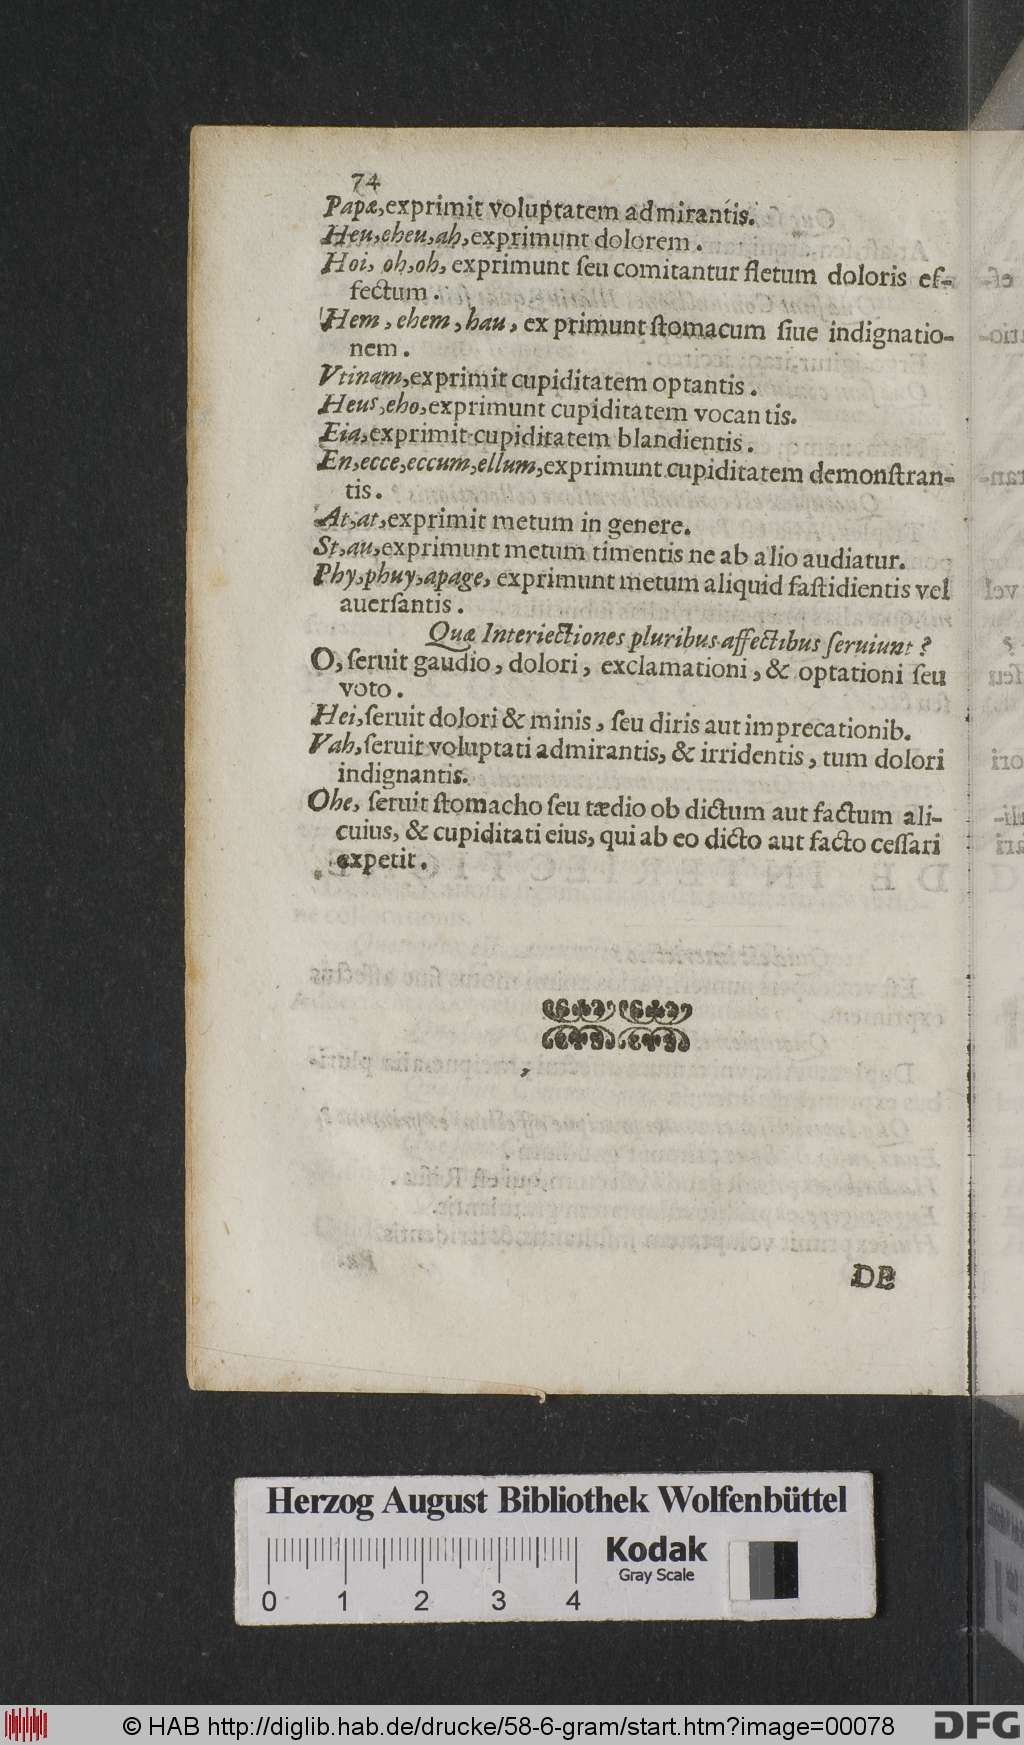 74
Papæ,exprimit voluptatem admirantis.
Heu,eheu,ah,exprimunt dolorem.
Hoi, oh,oh, exprimunt ſeu comitantur fletum doloris ef-
fectum.
Hem, ehem, hau, ex primunt ſtomacum ſiue indignatio-
nem.
Vtinam,exprimit cupiditatem optantis.
Heus,eho,exprimunt cupiditatem vocan tis.
Eia,exprimit cupiditatem blandientis.
En,ecce,eccum,ellum,exprimunt cupiditatem demonſtran-
tis.
At,at,exprimit metum in genere.
St,au,exprimunt metum timentis ne ab alio audiatur.
Phy,phuy,apage, exprimunt metum aliquid faſtidientis vel
auerſantis.
Quæ Interiectiones pluribus affectibus ſeruiunt?
O, ſeruit gaudio, dolori, exclamationi, & optationi ſeu
voto.
Hei,ſeruit dolori & minis, ſeu diris aut imprecationib.
Vah,ſeruit voluptati admirantis, & irridentis, tum dolori
indignantis.
Ohe, ſeruit ſtomacho ſeu tædio ob dictum aut factum ali-
cuius, & cupiditati eius, qui ab eo dicto aut facto ceſſari
expetit.
DE
Herzog August Bibliothek Wolfenbüttel
Kodak
Gray Scale
0 1 2 3 4
© HAB http://diglib.hab.de/drucke/58-6-gram/start.htm?image=00078
DFG